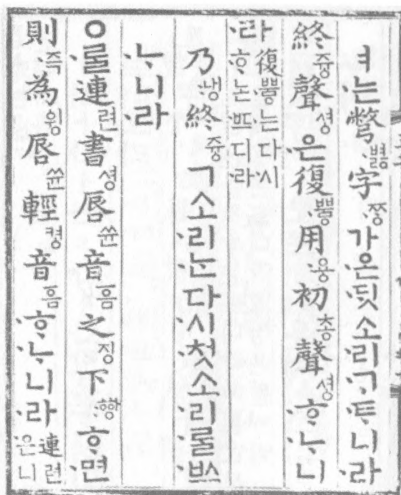 ㅕ는彆볋字ᄍᆞᆼ가온ᄃᆡᆺ소리ᄀᆞᄐᆞ니라
終즁聲셩은復뿌ᇢ用용初총聲셩ᄒᆞᄂᆞ니
라復뿌ᇢ는다시ᄒᆞ논ᄠᅳ디라
乃냉終즁ㄱ소리ᄂᆞᆫ다시첫소리ᄅᆞᆯᄡᅳ
ᄂᆞ니라
ㅇᄅᆞᆯ連련書셩唇쓘音ᅙᅳᆷ之징下ᅘᅡᆼᄒᆞ면
則즉為윙唇쓘輕켱音ᅙᅳᆷᄒᆞᄂᆞ니라連련은니